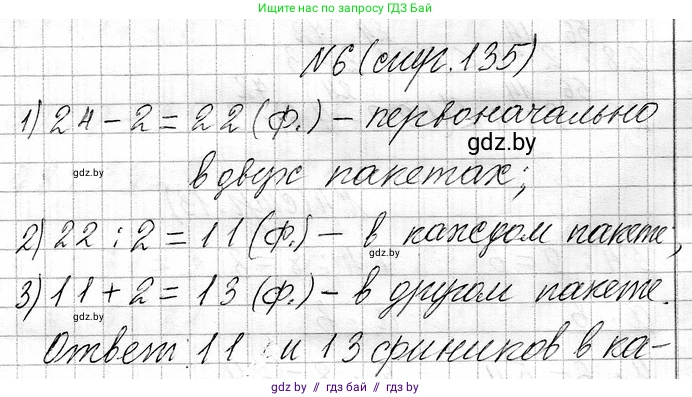 Ищите нас по запросу ГДЗ Бай
№6 (стр. 135)
1) 24 - 2 = 22 (ф.) - первоначально
gdz.by
gdz.by
в двух пакетах;
2) 22 : 2 = 11 (ф.) - в каждом пакете;
gdz.by
3) 11 + 2 = 13 (ф.) - в другом пакете.
gdz.by
Ответ: 11 и 13 фиников в ка-
gdz.by // гдз бай // gdz.by